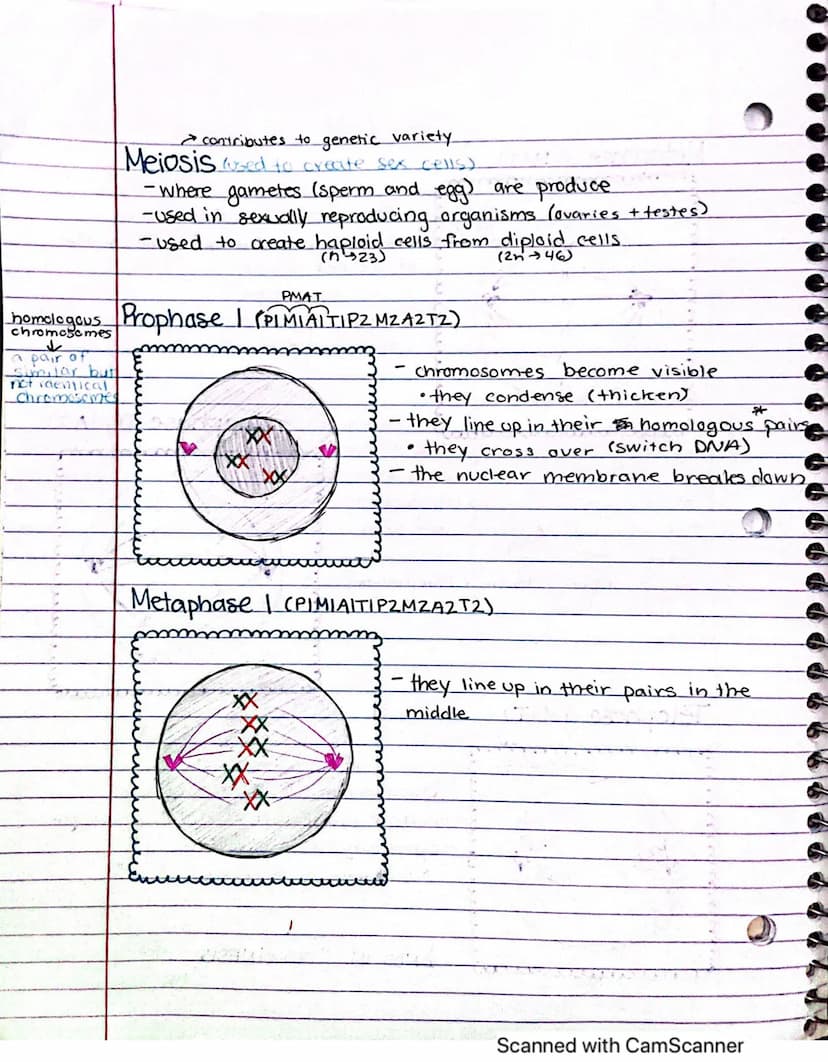 → contributes to genetic variety
Meiosis (used to create sex cells)
- where gametes (sperm and egg) are produce
- used in sexually reproducing organisms (ovaries + testes)
- used to create haploid cells from diploid cells
(n → 23) (2n → 46)
PMAT
Prophase 1 (P1M1A1T1P2M2A2T2)
homologous
chromosomes
↓
a pair of
similar but
not identical
chromosomes
- chromosomes become visible
• they condense (thicken)
- they line up in their homologous* pairs
• they cross over (switch DNA)
- the nuclear membrane breaks down
Metaphase 1 (P1M1A1T1P2M2A2T2)
- they line up in their pairs in the
middle
Scanned with CamScanner